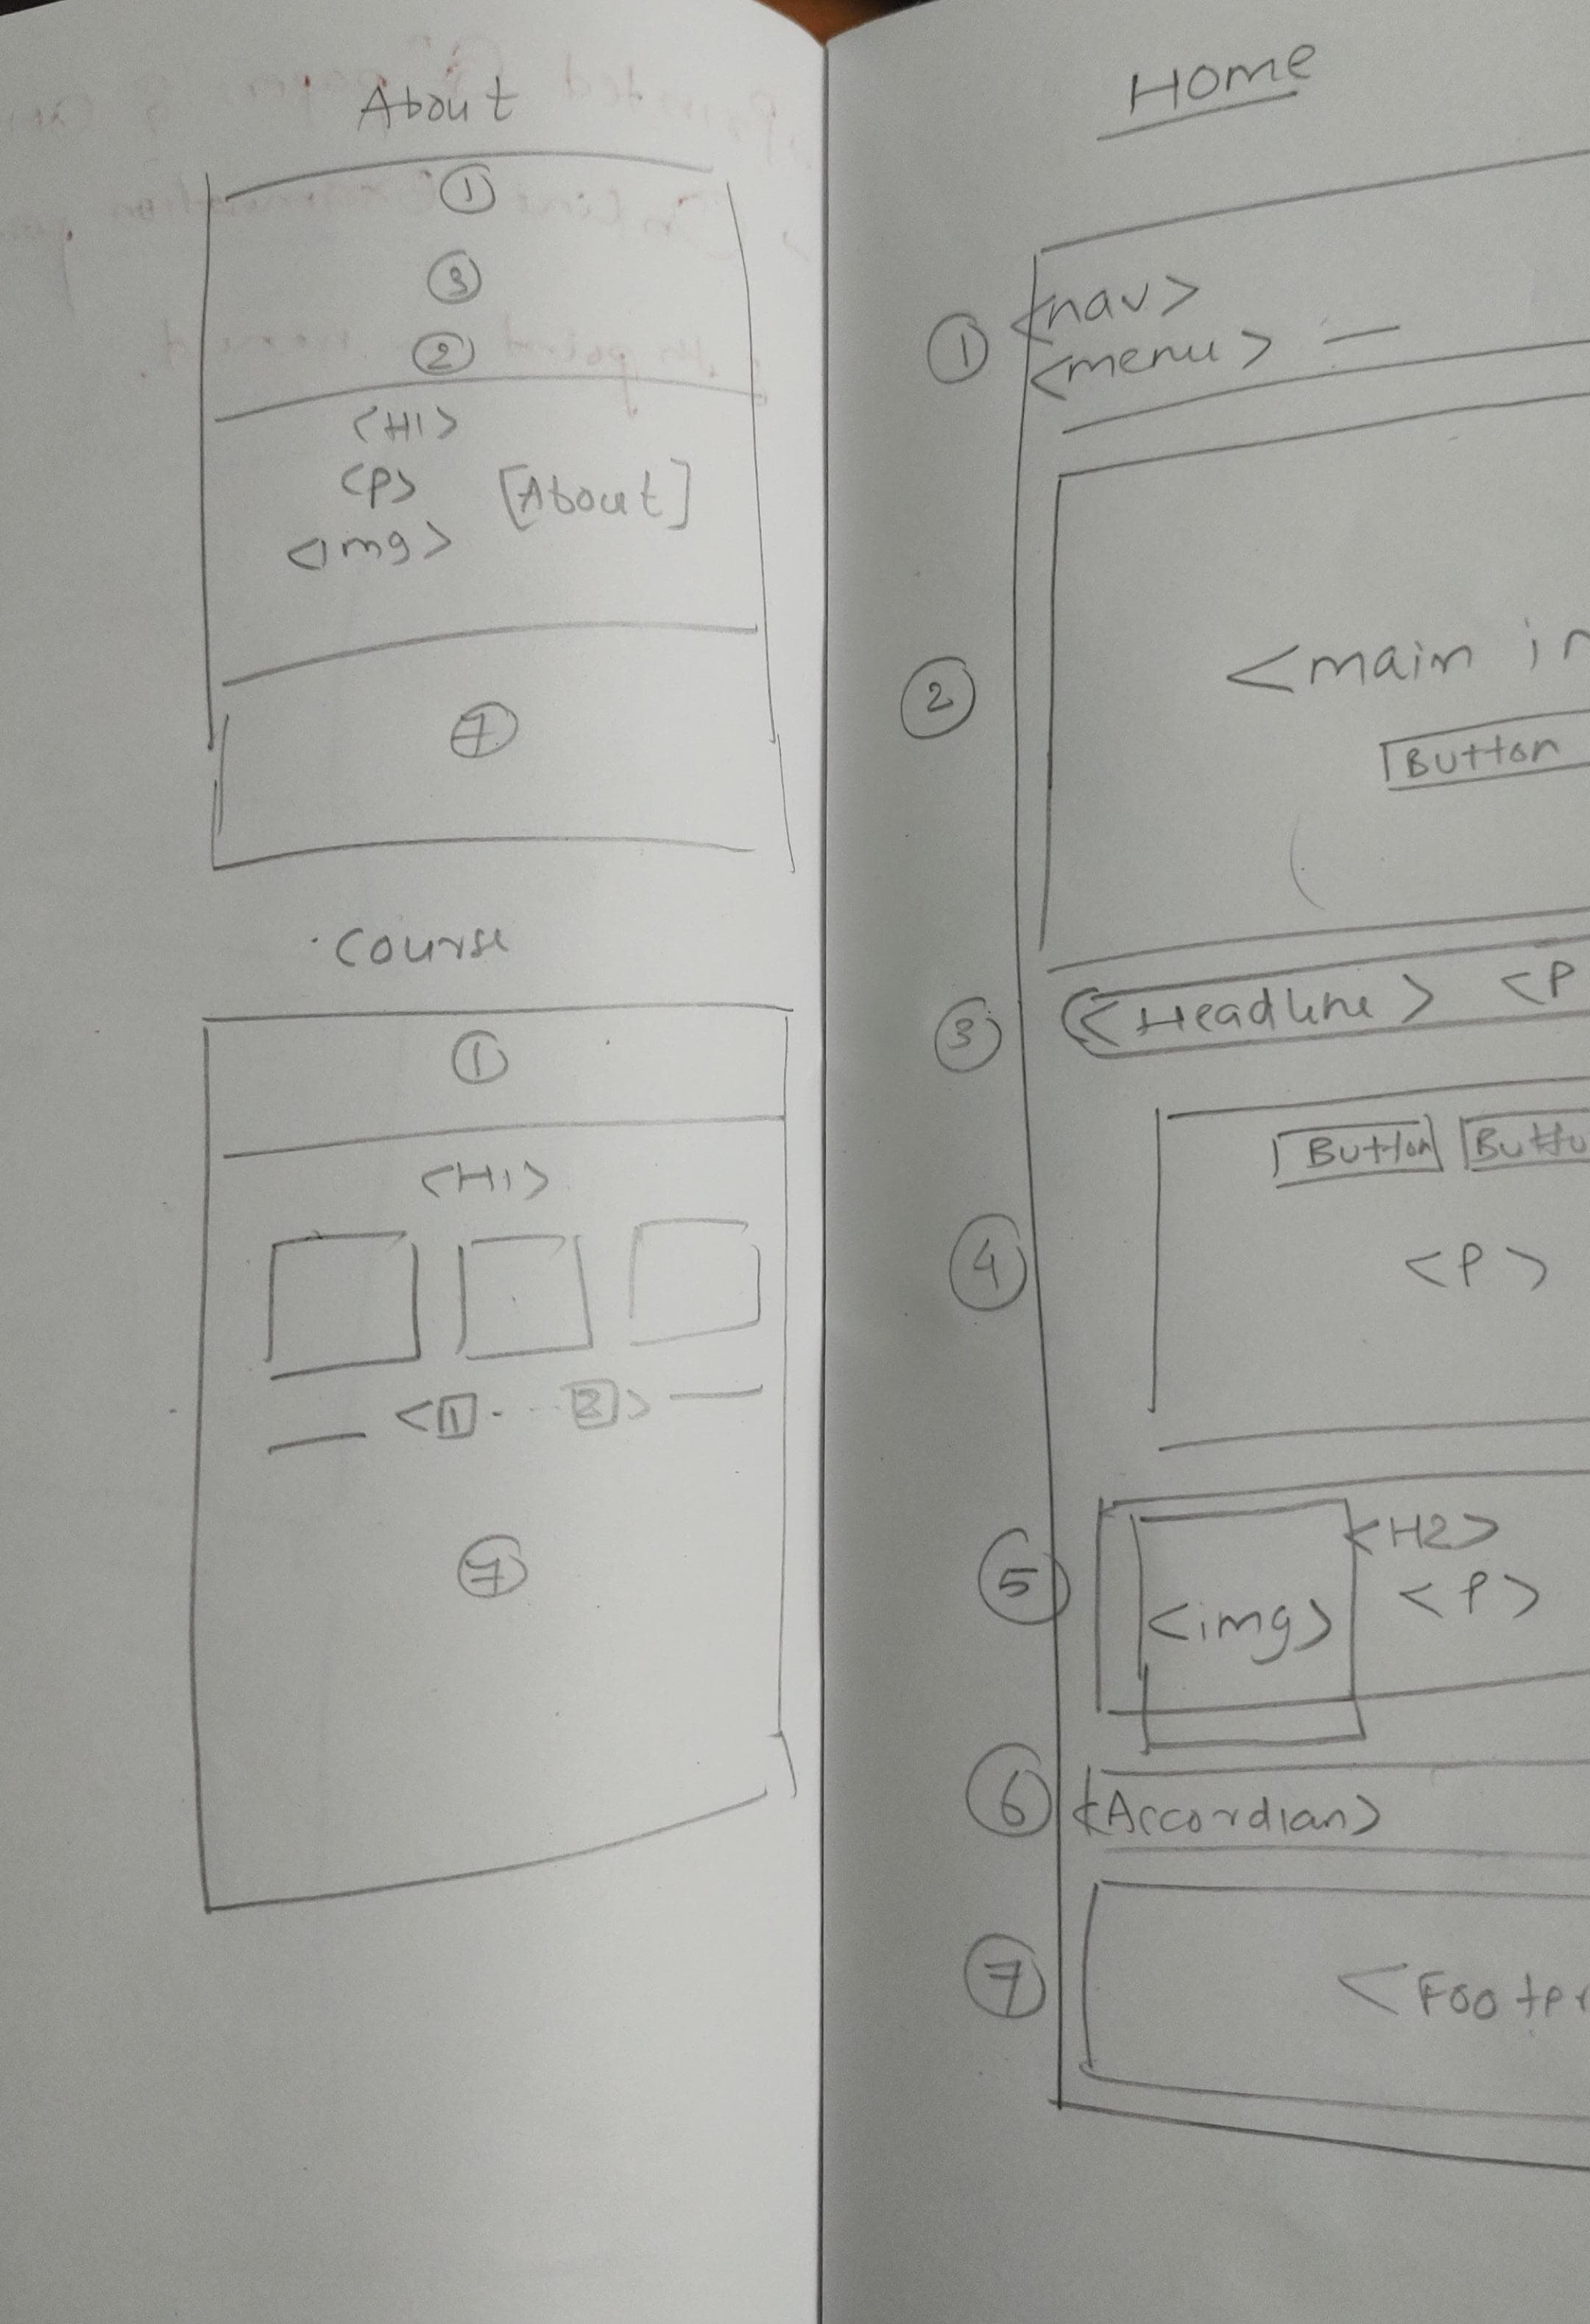 About
1
3
2
<H1>
<P> [About]
<img>
7
Course
1
<H1>
<1 - - - 3>
7
Home
1 <nav>
<menu> —
2 <main
Button
3 <Headline> <P
4 Button
<P>
5 <img> <H2>
<P>
6 <Accordian>
7 <Footer